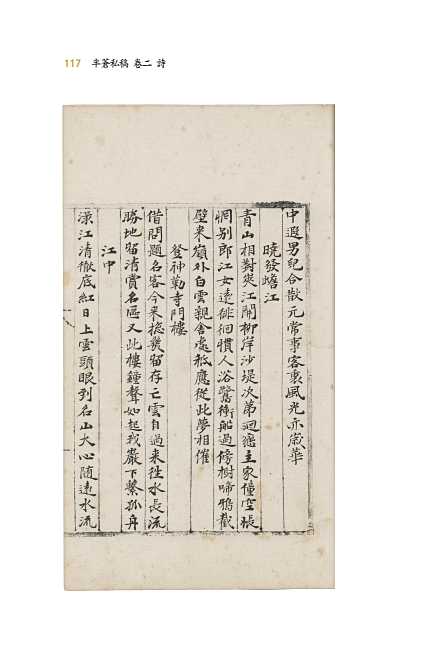 117 半蒼私稿 卷二 詩
中遐男兒合散元常事客裏風光亦歲華
曉發蟾江
青山相對奕江開柳岸沙堤次第迴戀主家僮空悵
惘別郎江女遠徘徊慣人浴鷺衝船過傍樹啼鴉截
壁來嶺外白雲親舍處秪應從此夢相催
登神勒寺門樓
借問題名客今來摠幾留存亡雲自過來徃水長流
勝地留清賞名區又此樓鍾聲如起我巖下繫孤舟
江中
漾江清徹底紅日上雲頭眼到名山大心隨遠水流